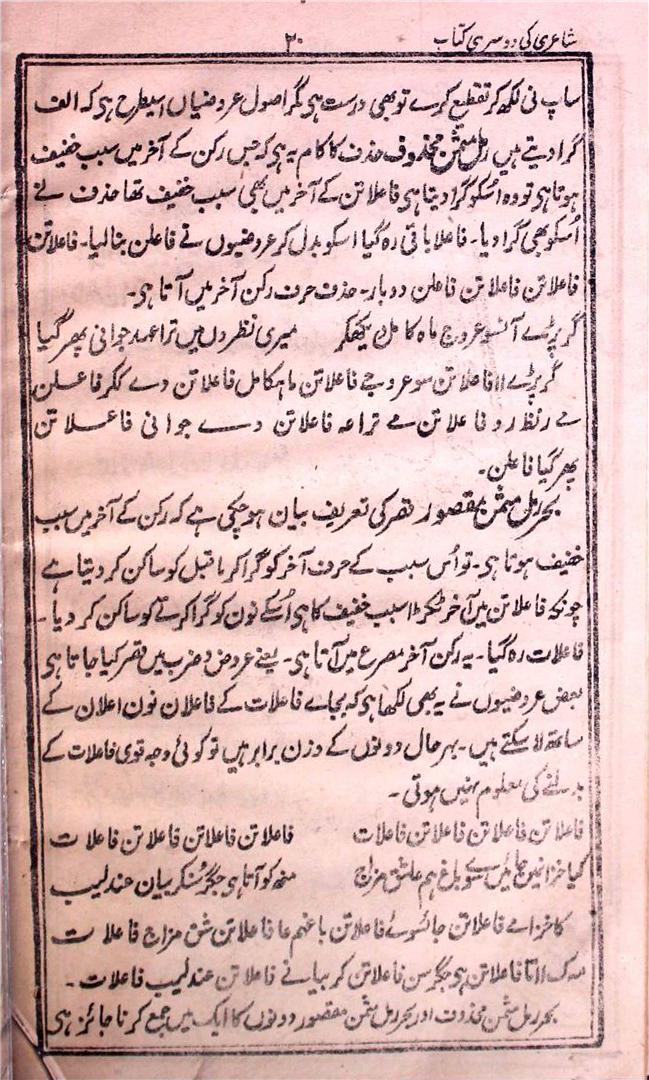 شاعری کی دوسری کتاب ۲۰
ساپ نی لکھ کر تقطیع کرے تو بھی درست ہی مگر اصول عروضیاں اسیطرح ہی کہ الف
گرا دیتے ہیں رمل مثمن محذوف حذف کا کام یہ ہی کہ جس رکن کے آخر میں سبب خفیف
ہوتا ہی تو وہ اسکو گرا دیتا ہی فاعلاتن کے آخر میں بھی سبب خفیف تھا حذف نے
اُسکو بھی گرا دیا۔ فاعلا باقی رہ گیا اسکو بدل کر عروضیوں نے فاعلن بنا لیا۔ فاعلاتن
فاعلاتن فاعلاتن فاعلن دوبار۔ حذف حرف رکن آخر میں آتا ہی۔
گر پڑے آنسو عروج ماہ کامل دیکھکر میری نظروں میں ترا عہد جوانی پھر گیا
گر پڑے اا فاعلاتن سو عروجے فاعلاتن ماہکامل فاعلاتن دے ککر فاعلن
مے رنظرو فاعلاتن مے تراعہ فاعلاتن دے جوانی فاعلاتن
پھر گیا فاعلن۔
بحر رمل مثمن مقصور قصر کی تعریف بیان ہو چکی ہے کہ رکن کے آخر میں سبب
خفیف ہوتا ہی۔ تو اُس سبب کے حرف آخر کو گرا کر ماقبل کو ساکن کر دیتا ہے
چونکہ فاعلاتن میں آخر ٹکڑا سبب خفیف کا ہی اُسکے نون کو گرا کر تے کو ساکن کر دیا۔
فاعلات رہ گیا۔ یہ رکن آخر مصرع میں آتا ہی۔ یعنے عروض و ضرب میں قصر کیا جاتا ہی
بعض عروضیوں نے یہ بھی لکھا ہی کہ بجاے فاعلات کے فاعلان نون اعلان کے
ساتھ لا سکتے ہیں۔ بہر حال دونوں کے وزن برابر ہیں تو کوئی وجہ قوی فاعلات کے
بدلنے کی معلوم نہیں ہوتی۔
فاعلاتن فاعلاتن فاعلاتن فاعلات فاعلاتن فاعلاتن فاعلاتن فاعلات
کیا خزانمیں جائیں سوے باغ ہم عاشق مزاج منھ کو آتا ہی جگر سُنکر بیان عندلیب
کا خزا مے فاعلاتن جائسوے فاعلاتن باغہم عا فاعلاتن شق مزاج فاعلات
مہ ک ااتا فاعلاتن ہی جگر سن فاعلاتن کر بیانے فاعلاتن عندلیب فاعلات۔
بحر رمل مثمن محذوف اور بحر رمل مثمن مقصور دونوں کا ایک میں جمع کرنا جائز ہی